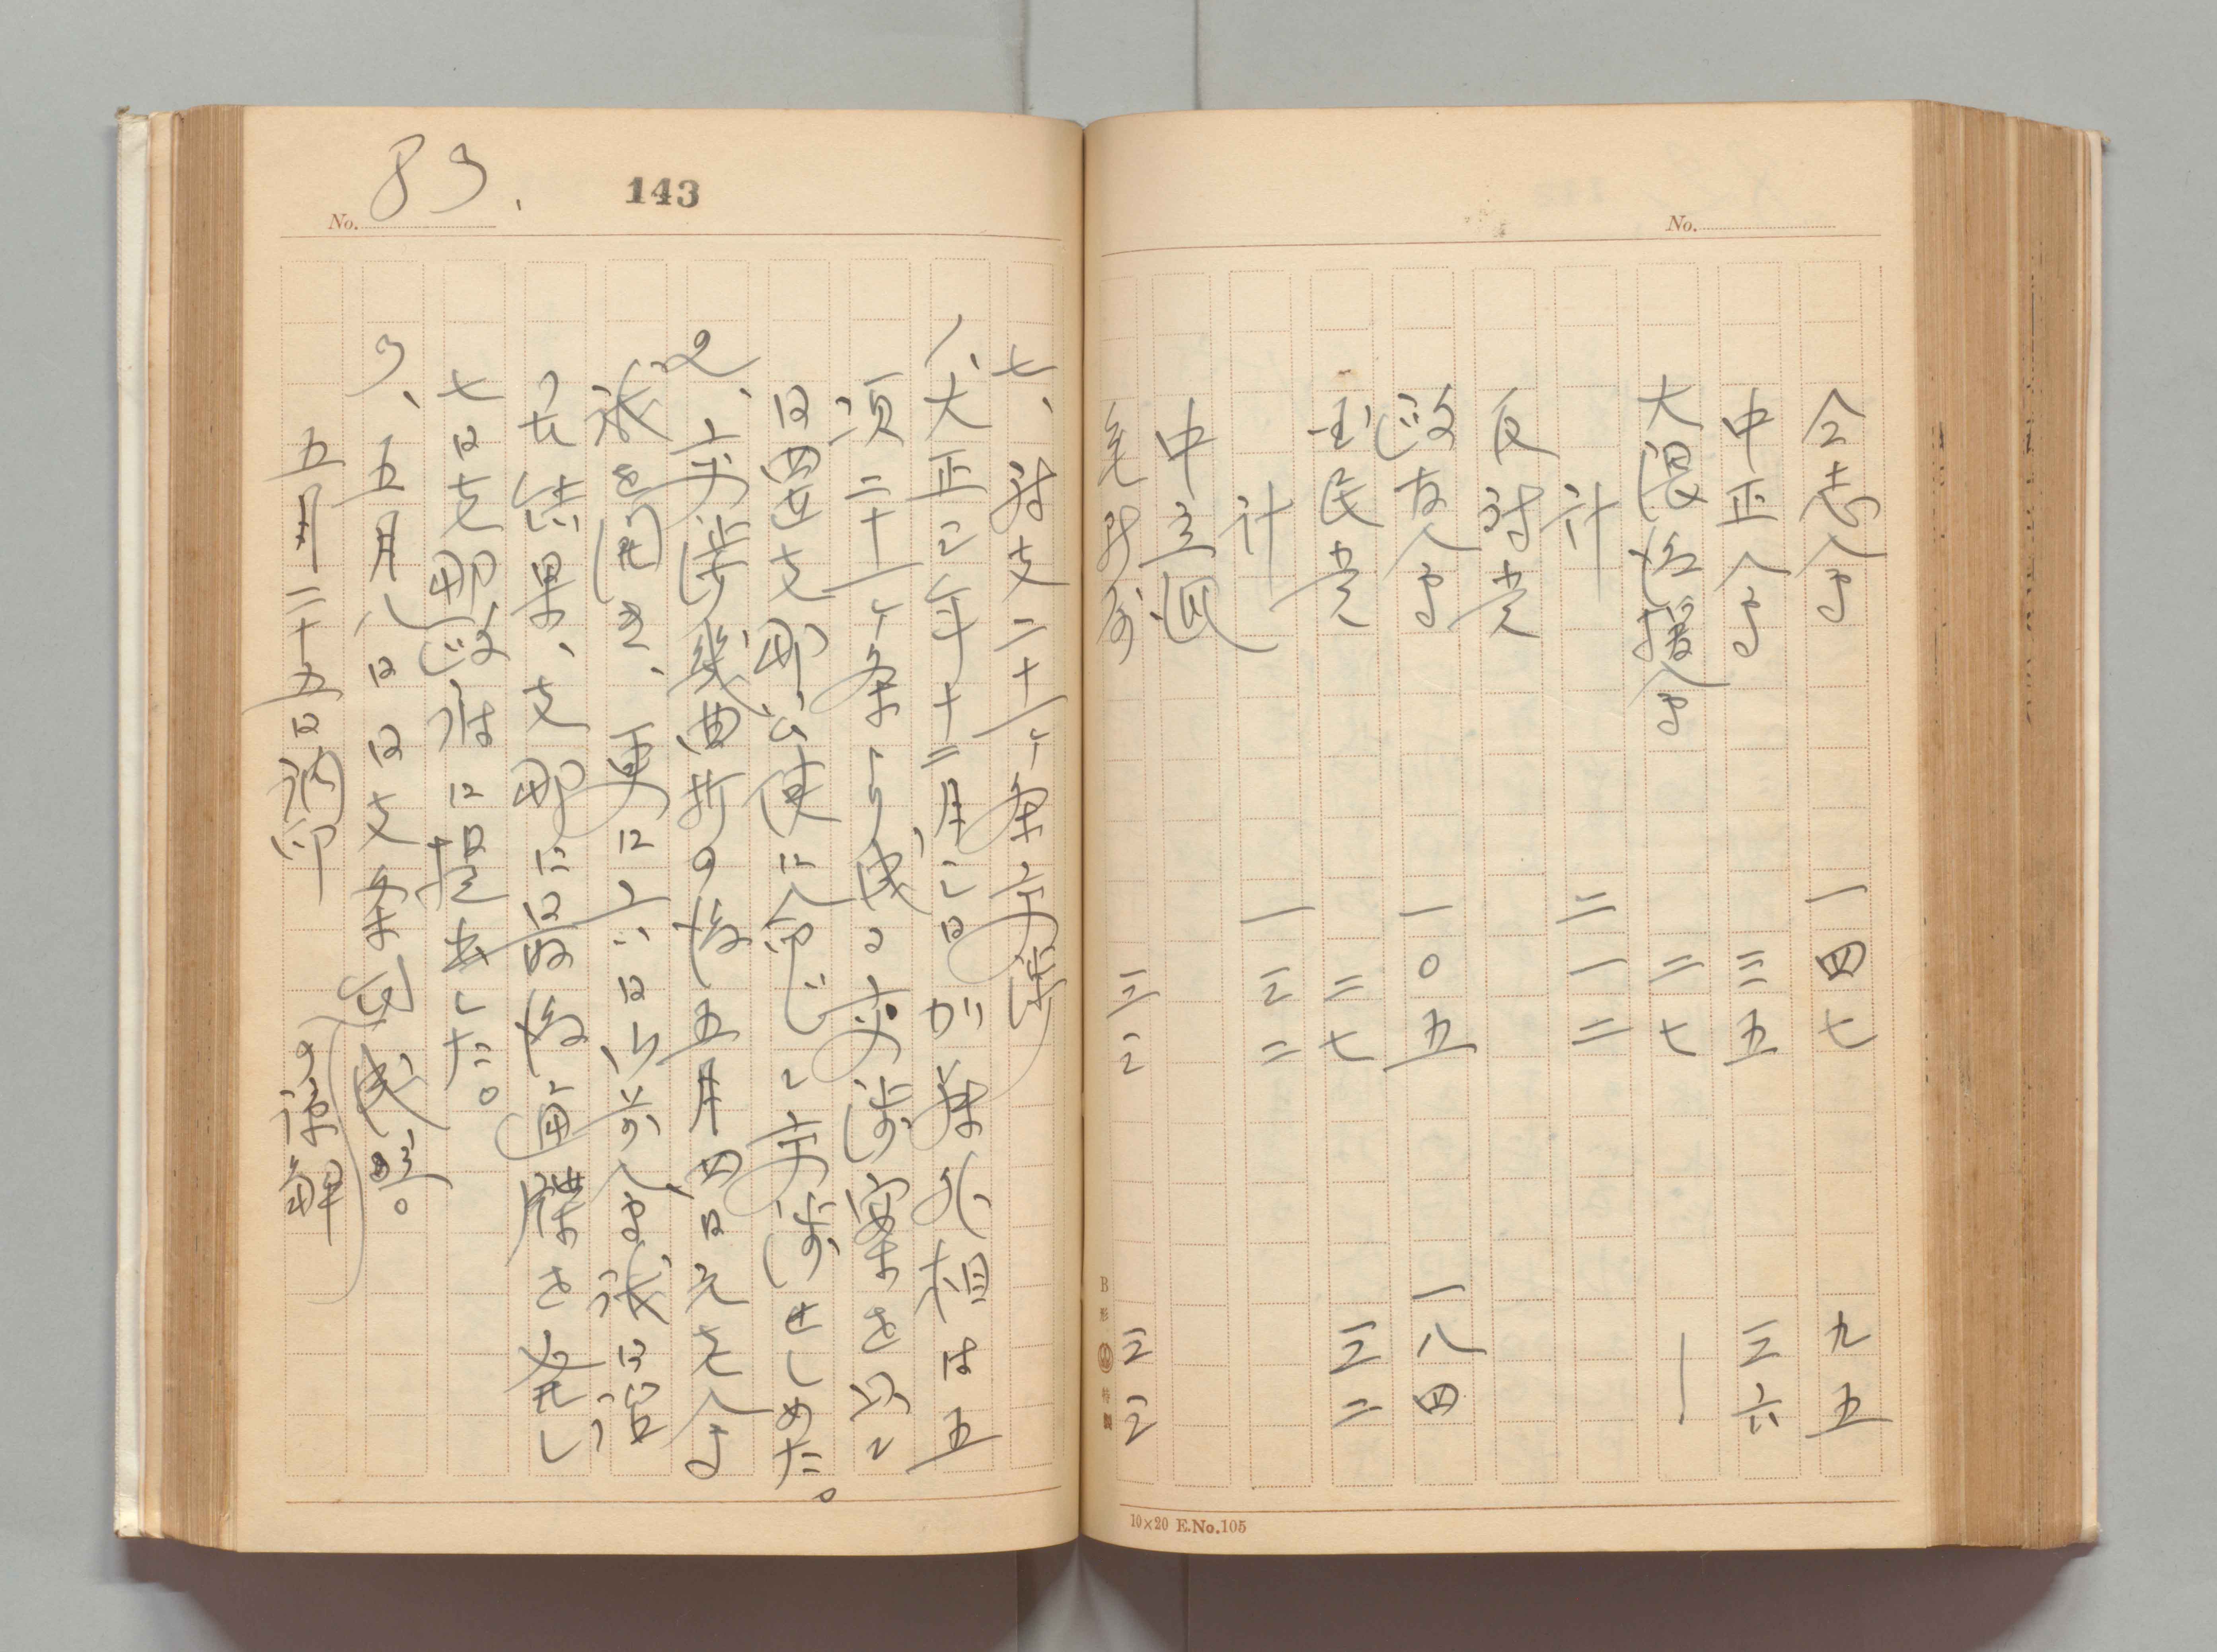 No.
仝志会 一四七 九五
中正会 三五 三六
大隈伯後援会 二七 ―
計 二一二
反対党
政友会 一〇五 一八四
国民党 二七 三二
計 一三二
中立派
無所属 三三 三三
B形 特製
10×20 E.No.105
No. 83.
143
七、対支二十一ヶ条交渉
1、大正三年十二月三日加藤外相は五
項二十一ヶ条より成る交渉案を以て
日置支那公使に命じて交渉せしめた。
2、交渉幾曲折の後五月四日元老会
議を開き、更に六日御前会議
の結果、支那に最後通牒を発し
七日支那政府に提出した。
3、五月八日日支条約成立。
五月二十五日調印 の諒解